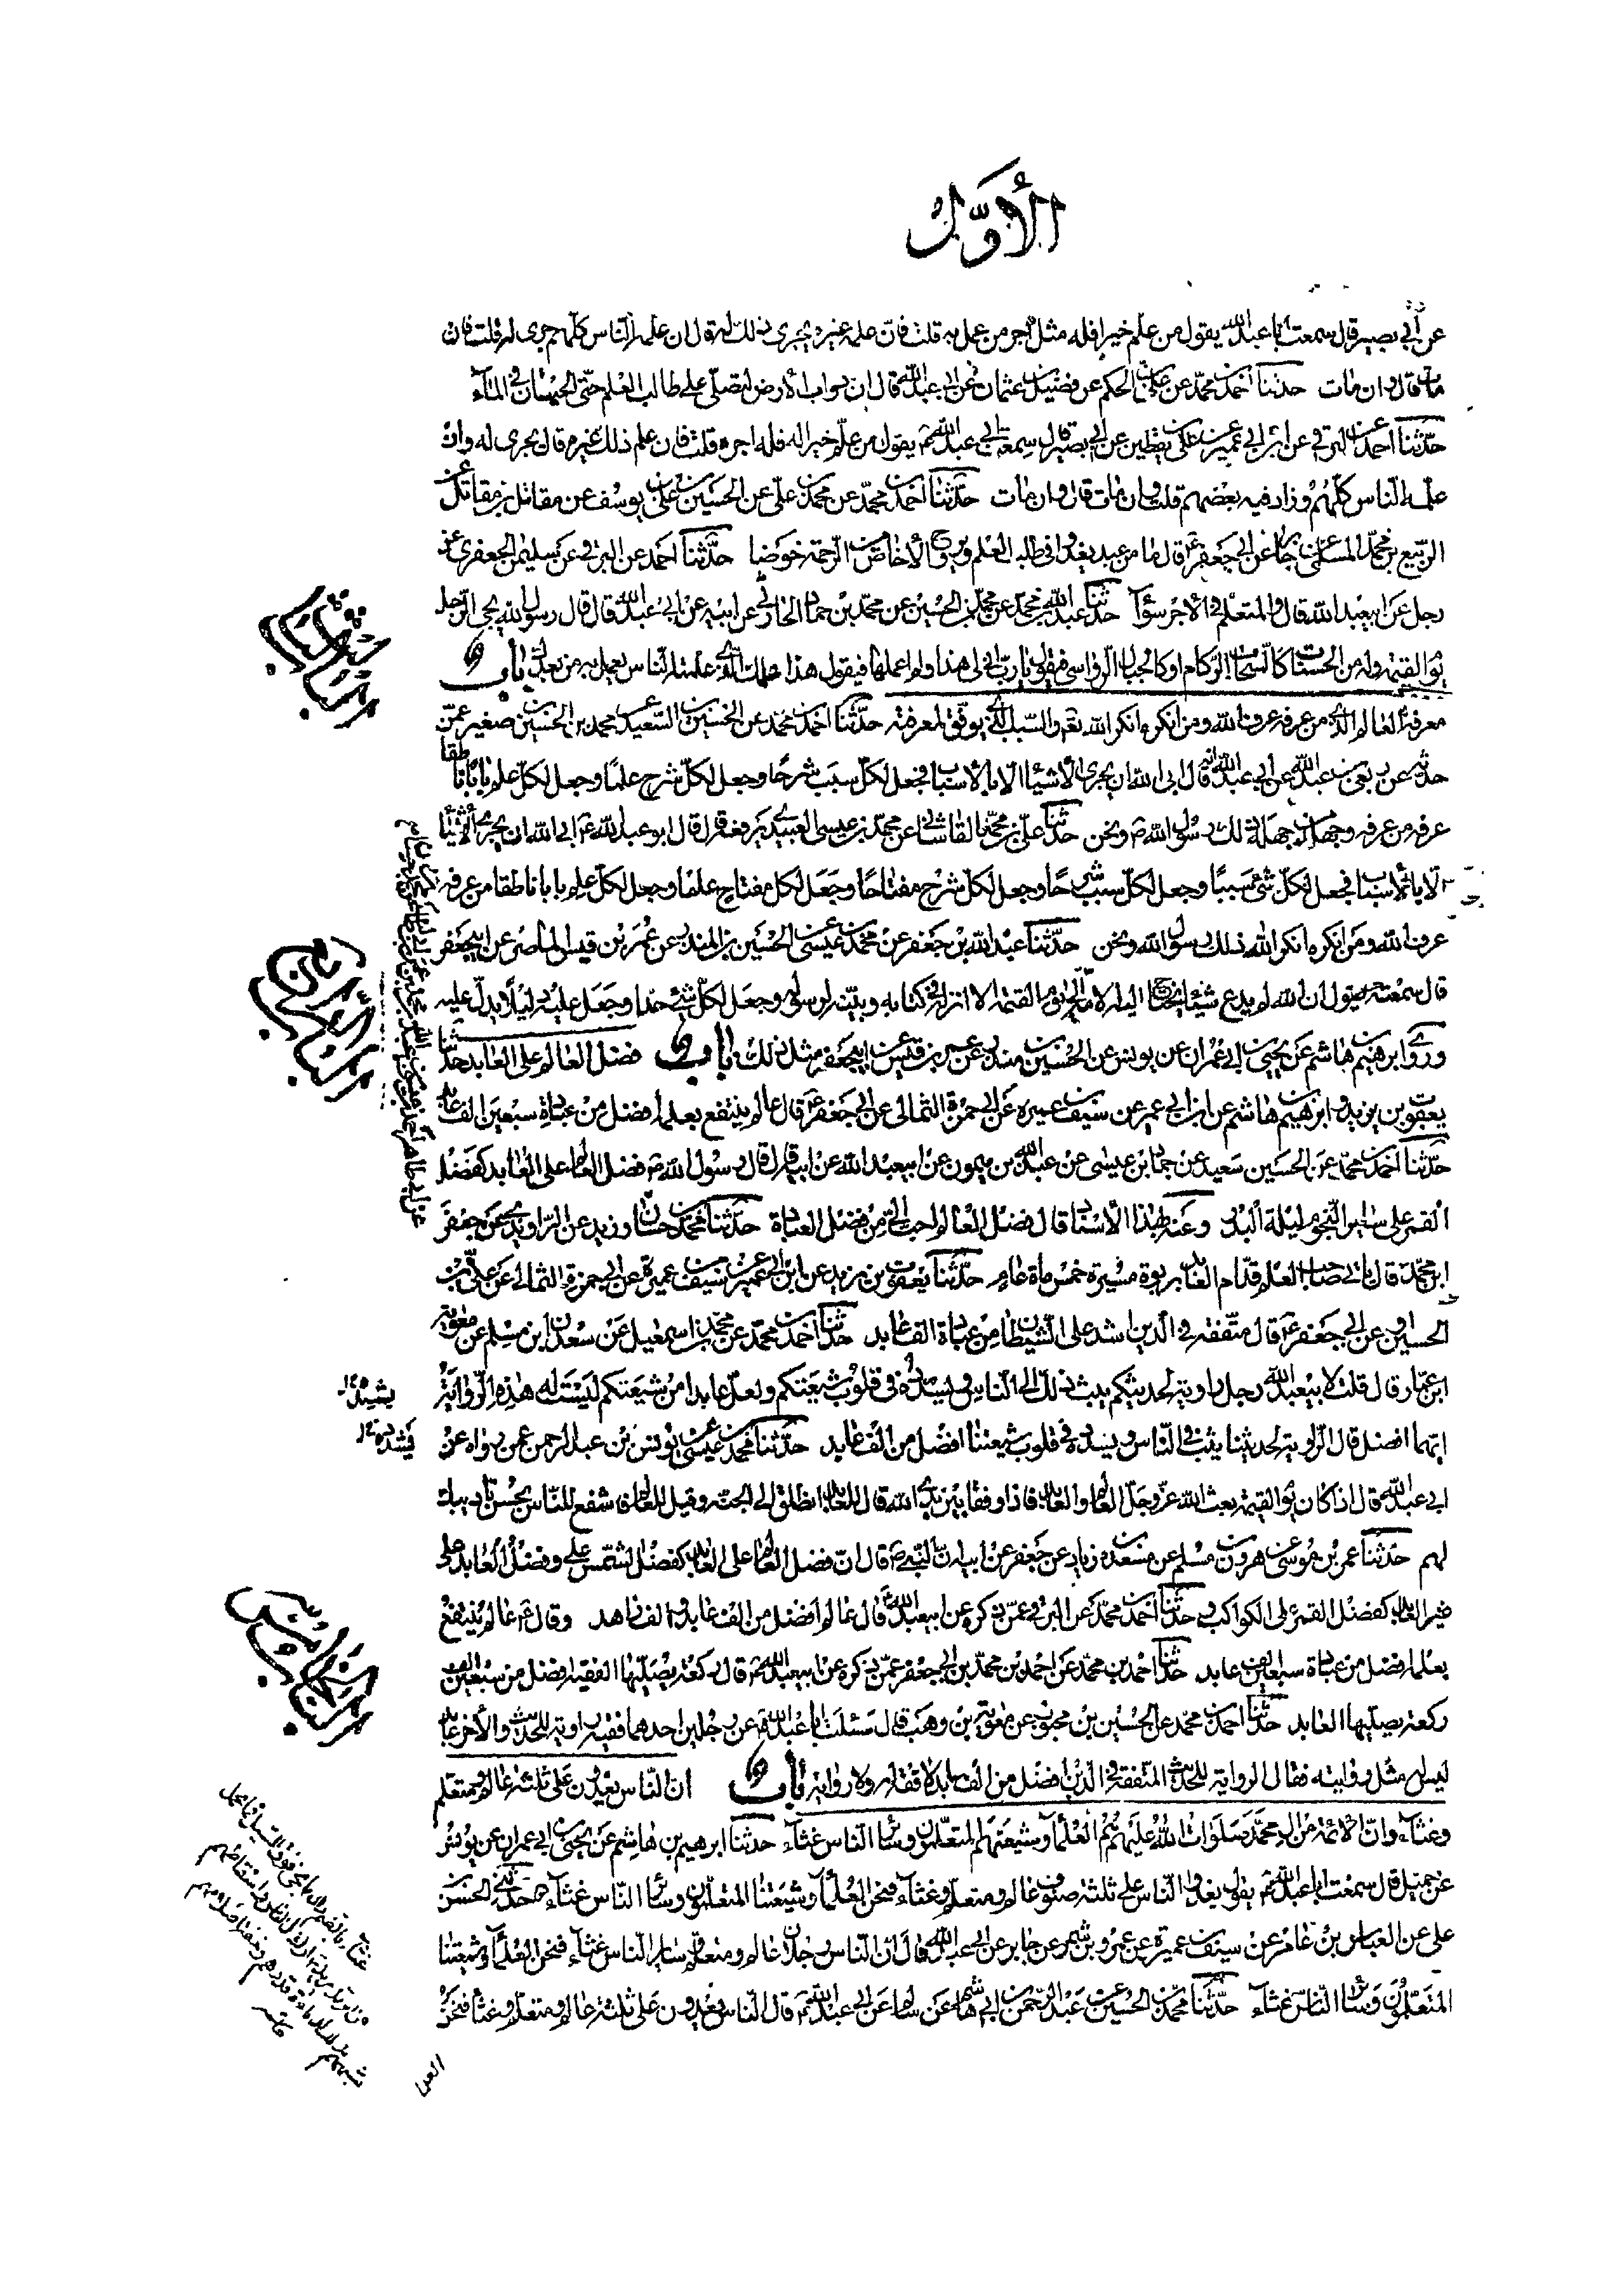 الأوّل
عن أبي بصير قال سمعت أبا عبد الله يقول من علم خيرا فله مثل أجر من عمل به قلت فان علمه غيره يجرى ذلك له قال ان علمه الناس كلهم جرى له قلت فان
مات قال وان مات حدثنا احمد بن محمد عن علي بن الحكم عن فضيل بن عثمان عن ابي عبد الله قال ان دواب الأرض لتصلى على طالب العلم حتى الحيتان في الماء
حدثنا احمد عن البرقي عن ابن ابي عمير عن علي بن يقطين عن ابي بصير قال سمعت ابي عبد الله يقول من علم خيرا له فله اجره قلت فان علم ذلك غيره قال يجرى له وان
علمه الناس كلهم وزاد فيه بعضهم قلت وان مات قال وان مات حدثنا احمد بن محمد عن محمد بن علي عن الحسين بن علي بن يوسف عن مقاتل بن مقاتل عن
الربيع بن محمد المسلى عن جابر عن ابي جعفر قال ما من عبد يغدو في طلب العلم ويروح الا خاض الرحمة خوضا حدثنا احمد عن البرقي عن سليمن الجعفرى عن
رجل عن ابيعبد الله قال والمتعلم في الاجر سواء حدثنا عبد الله بن محمد عن محمد بن الحسين عن محمد بن حماد الحارثي عن ابيه عن ابي عبد الله قال قال رسول الله يجئ الرجل
يوم القيمة وله من الحسنات كالسحاب الركام او كالجبال الرواسى فيقول يا رب انى لى هذا ولم اعملها فيقول هذا علمك الذي علمته الناس يعمل به من بعدك باب
معرفة العالم الذي من عرفه عرف الله ومن انكره انكر الله تعالى والسبب الذي يوفق لمعرفته حدثنا احمد بن محمد عن الحسين بن السعيد عن محمد بن الحسين بن صغير عمن
حدثه عن ربعي بن عبد الله عن ابي عبد الله انه قال ابى الله ان يجرى الاشياء الا بالاسباب فجعل لكل سبب شرحا وجعل لكل شرح علما وجعل لكل علم بابا ناطقا
عرفه من عرفه وجهله من جهله ذلك رسول الله ونحن حدثنا علي بن محمد القاشاني عن محمد بن عيسى العبيدى يرفعه قال قال ابو عبد الله ابى الله ان يجرى الاشياء
الا بالاسباب فجعل لكل شئ سببا وجعل لكل سبب شرحا وجعل لكل شرح مفتاحا وجعل لكل مفتاح علما وجعل لكل علم بابا ناطقا من عرفه
عرف الله ومن انكره انكر الله ذلك رسول الله ونحن حدثنا عبد الله بن جعفر عن محمد بن عيسى عن الحسين بن المنذر عن عمر بن قيس الماصر عن ابيجعفر
قال سمعته يقول ان الله لم يدع شيئا يحتاج اليه الامة الى يوم القيمة الا انزله في كتابه وبينه لرسوله وجعل لكل شئ حدا وجعل عليه دليلا يدل عليه
وروى ابرهيم بن هاشم عن يحيى بن ابي عمران عن يونس عن الحسين بن منذر عن عمر بن قيس عن ابيجعفر مثل ذلك باب فضل العالم على العابد حدثنا
يعقوب بن يزيد و ابرهيم بن هاشم عن ابن ابي عمير عن سيف بن عميره عن ابي حمزة الثمالى عن ابي جعفر قال عالم ينتفع بعلمه افضل من عبادة سبعين الف عابد
حدثنا احمد بن محمد عن الحسين بن سعيد عن حماد ابن عيسى عن عبد الله بن ميمون عن ابيعبد الله عن ابيه قال قال رسول الله فضل العالم على العابد كفضل
القمر على ساير النجوم ليلة البدر وعنه بهذا الاسناد قال فضل العالم احب الى من فضل العبادة حدثنا محمد بن حسان وزيد عن الراوندى عن جعفر
ابن محمد قال ياتى صاحب العلم قدام العابد بربوة مسيرة خمس ماة عام حدثنا يعقوب بن يزيد عن ابن ابي عمير عن سيف بن عميرة عن ابي حمزة الثمالى عن علي بن
الحسين او عن ابي جعفر قال متفقه في الدين اشد على الشيطان من عبادة الف عابد حدثنا احمد بن محمد عن محمد بن اسمعيل عن سعدان ابن مسلم عن معوية
ابن عمار قال قلت لابيعبد الله رجل راوية لحديثكم يبث ذلك الى الناس ويسدده في قلوب شيعتكم ولعل عابدا من شيعتكم ليست له هذه الرواية
ايهما افضل قال الراوية لحديثنا يبث في الناس ويسدده في قلوب شيعتنا افضل من الف عابد حدثنا محمد بن عيسى عن يونس بن عبد الرحمن عمن رواه عن
ابي عبد الله قال اذا كان يوم القيمة بعث الله عز وجل العالم والعابد فاذا وقفا بين يدى الله قال للعابد انطلق الى الجنة وقيل للعالم قف اشفع للناس بحسن تاديبك
لهم حدثنا عمر بن موسى عن هرون بن مسلم عن مسعدة بن زياد عن جعفر عن ابيه ان النبي قال ان فضل العالم على العابد كفضل الشمس على وفضل العابد على
غير العابد كفضل القمر على الكواكب و حدثنا احمد بن محمد عن البرقي عمن ذكره عن ابيعبد الله قال عالم افضل من الف عابد والف زاهد وقال عالم ينتفع
بعلمه افضل من عبادة سبعين الف عابد حدثنا احمد بن محمد عن احمد بن محمد بن ابي جعفر عمن ذكره عن ابيعبد الله قال ركعة يصليها الفقيه افضل من سبعين الف
ركعة يصليها العابد حدثنا احمد بن محمد عن الحسين بن محبوب عن معوية بن وهب قال سئلت ابا عبد الله عن رجلين احدهما فقيه راوية للحديث والاخر عابد
ليس له مثل روايته فقال الرواية للحديث المتفقه في الدين افضل من الف عابد لا فقه له ولا رواية باب ان الناس يغدون على ثلثة عالم ومتعلم
وغثاء وان الائمة من ال محمد صلوات الله عليهم هم العلماء وشيعتهم المتعلمون وسائر الناس غثاء حدثنا ابرهيم بن هاشم عن يحيى بن ابي عمران عن يونس
عن جميل قال سمعت ابا عبد الله يقول يغدوا الناس على ثلثة صنوف عالم ومتعلم وغثاء فنحن العلماء وشيعتنا المتعلمون وسائر الناس غثاء حدثني الحسن بن
علي عن العباس بن عامر عن سيف بن عميرة عن عمرو بن شمر عن جابر عن ابي عبد الله قال ان الناس رجلان عالم ومتعلم وساير الناس غثاء فنحن العلماء وشيعتنا
المتعلمون وسائر الناس غثاء حدثنا محمد بن الحسين عن عبد الرحمن بن ابي هاشم عن سالم عن ابي عبد الله قال الناس يغدون على ثلثة عالم ومتعلم وغثاء فنحن
الباب الثالث
الباب الرابع
يشدد
الباب الخامس
العلما